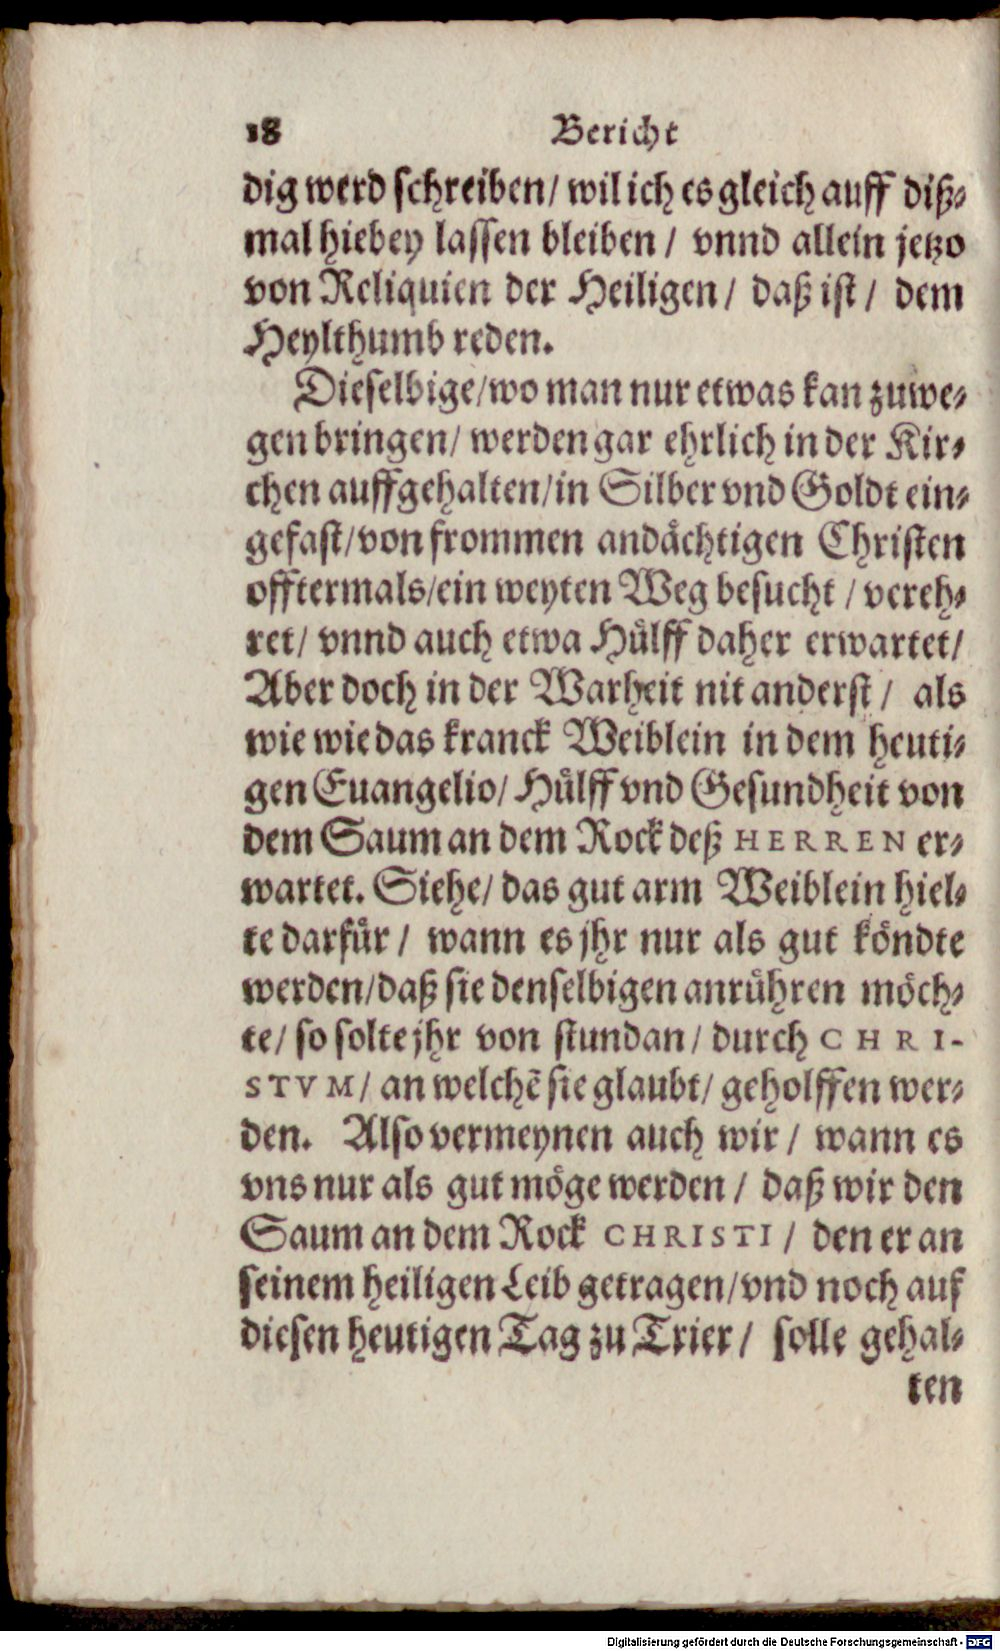 18 Bericht
dig werd schreiben/ wil ich es gleich auff diß-
mal hiebey lassen bleiben / vnnd allein jetzo
von Reliquien der Heiligen / daß ist / dem
Heylthumb reden.
Dieselbige/wo man nur etwas kan zuwe-
gen bringen/ werden gar ehrlich in der Kir-
chen auffgehalten/in Silber vnd Goldt ein-
gefast/von frommen andåchtigen Christen
offtermals/ein weyten Weg besucht / vereh-
ret/ vnnd auch etwa Hůlff daher erwartet/
Aber doch in der Warheit nit anderst / als
wie wie das kranck Weiblein in dem heuti-
gen Euangelio/ Hůlff vnd Gesundheit von
dem Saum an dem Rock deß HERREN er-
wartet. Siehe/ das gut arm Weiblein hiel-
te darfůr / wann es jhr nur als gut kôndte
werden/daß sie denselbigen anrůhren môch-
te/ so solte jhr von stundan / durch CHRI-
STVM/ an welchẽ sie glaubt/ geholffen wer-
den. Also vermeynen auch wir / wann es
vns nur als gut môge werden / daß wir den
Saum an dem Rock CHRISTI / den er an
seinem heiligen Leib getragen/vnd noch auf
diesen heutigen Tag zu Trier / solle gehal-
ten
Digitalisierung gefördert durch die Deutsche Forschungsgemeinschaft - DFG